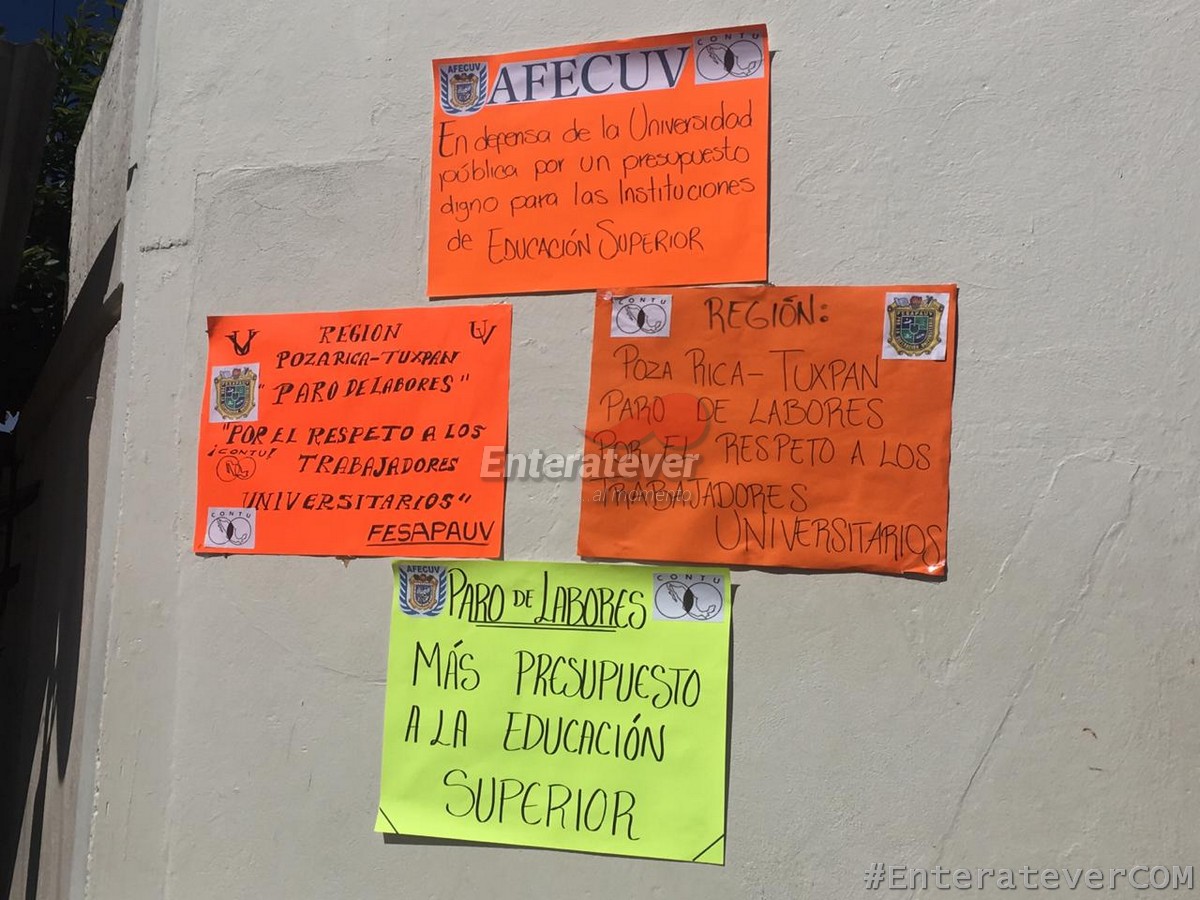 AFECUV
AFECUV
CONTU
En defensa de la Universidad
pública por un presupuesto
digno para las Instituciones
de EDUCACIÓN SUPERIOR
UV
REGION
UV
POZA RICA-TUXPAN
"PARO DE LABORES"
"POR EL RESPETO A LOS
¡CONTU!
TRABAJADORES
UNIVERSITARIOS"
CONTU
FESAPAUV
CONTU
REGIÓN:
FESAPAUV
POZA RICA-TUXPAN
PARO DE LABORES
POR EL RESPETO A LOS
TRABAJADORES
UNIVERSITARIOS
Enteratever
al momento
AFECUV
PARO DE LABORES
CONTU
MÁS PRESUPUESTO
A LA EDUCACIÓN
SUPERIOR
#EnterateverCOM